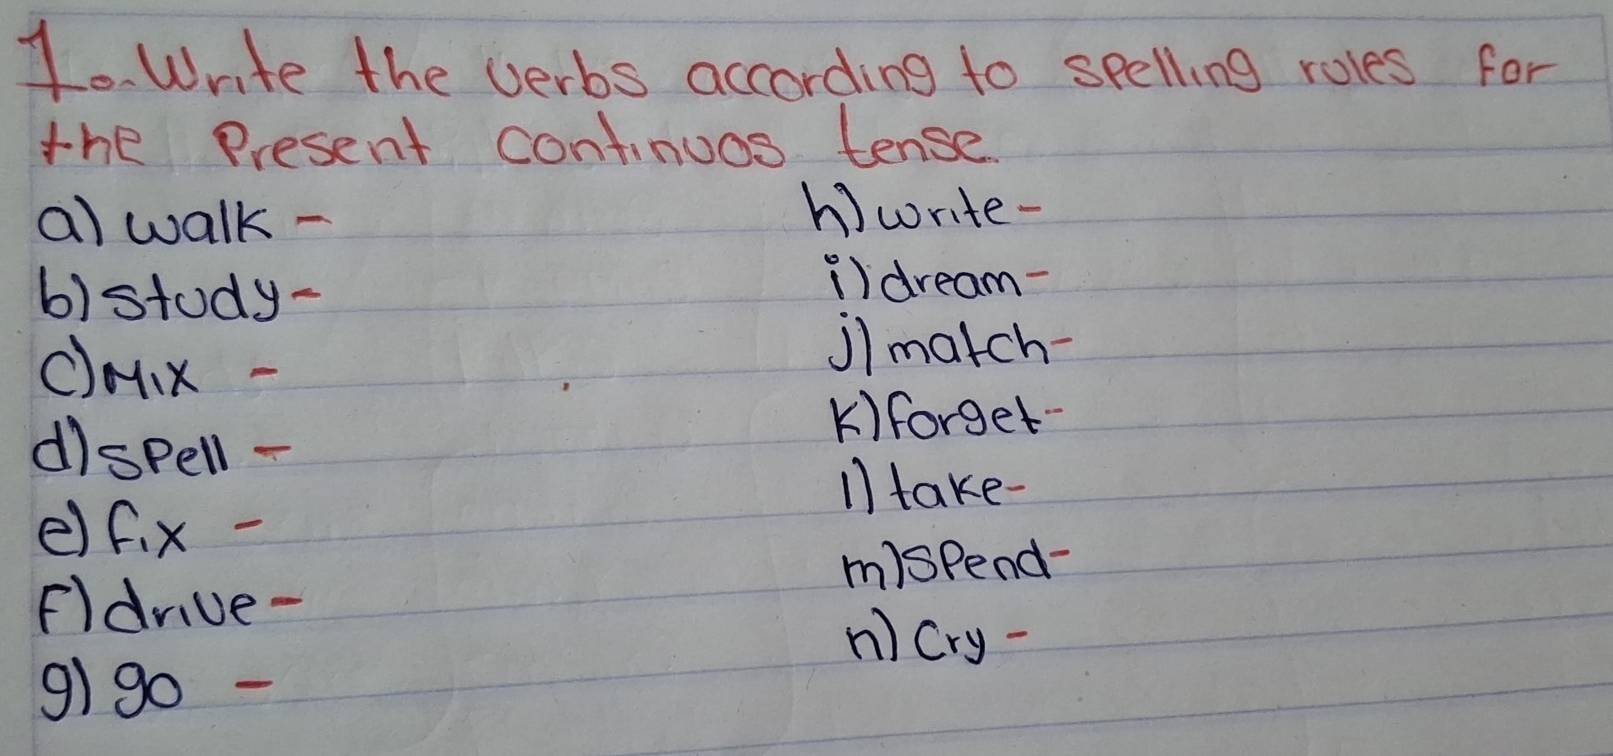 1.- Write the verbs according to spelling rules for
the Present continuos tense.
a) walk -
b) study -
c) Mix -
d) spell -
e) fix -
F) drive -
g) go -
h) write -
i) dream -
j) match -
k) forget -
l) take -
m) spend -
n) Cry -